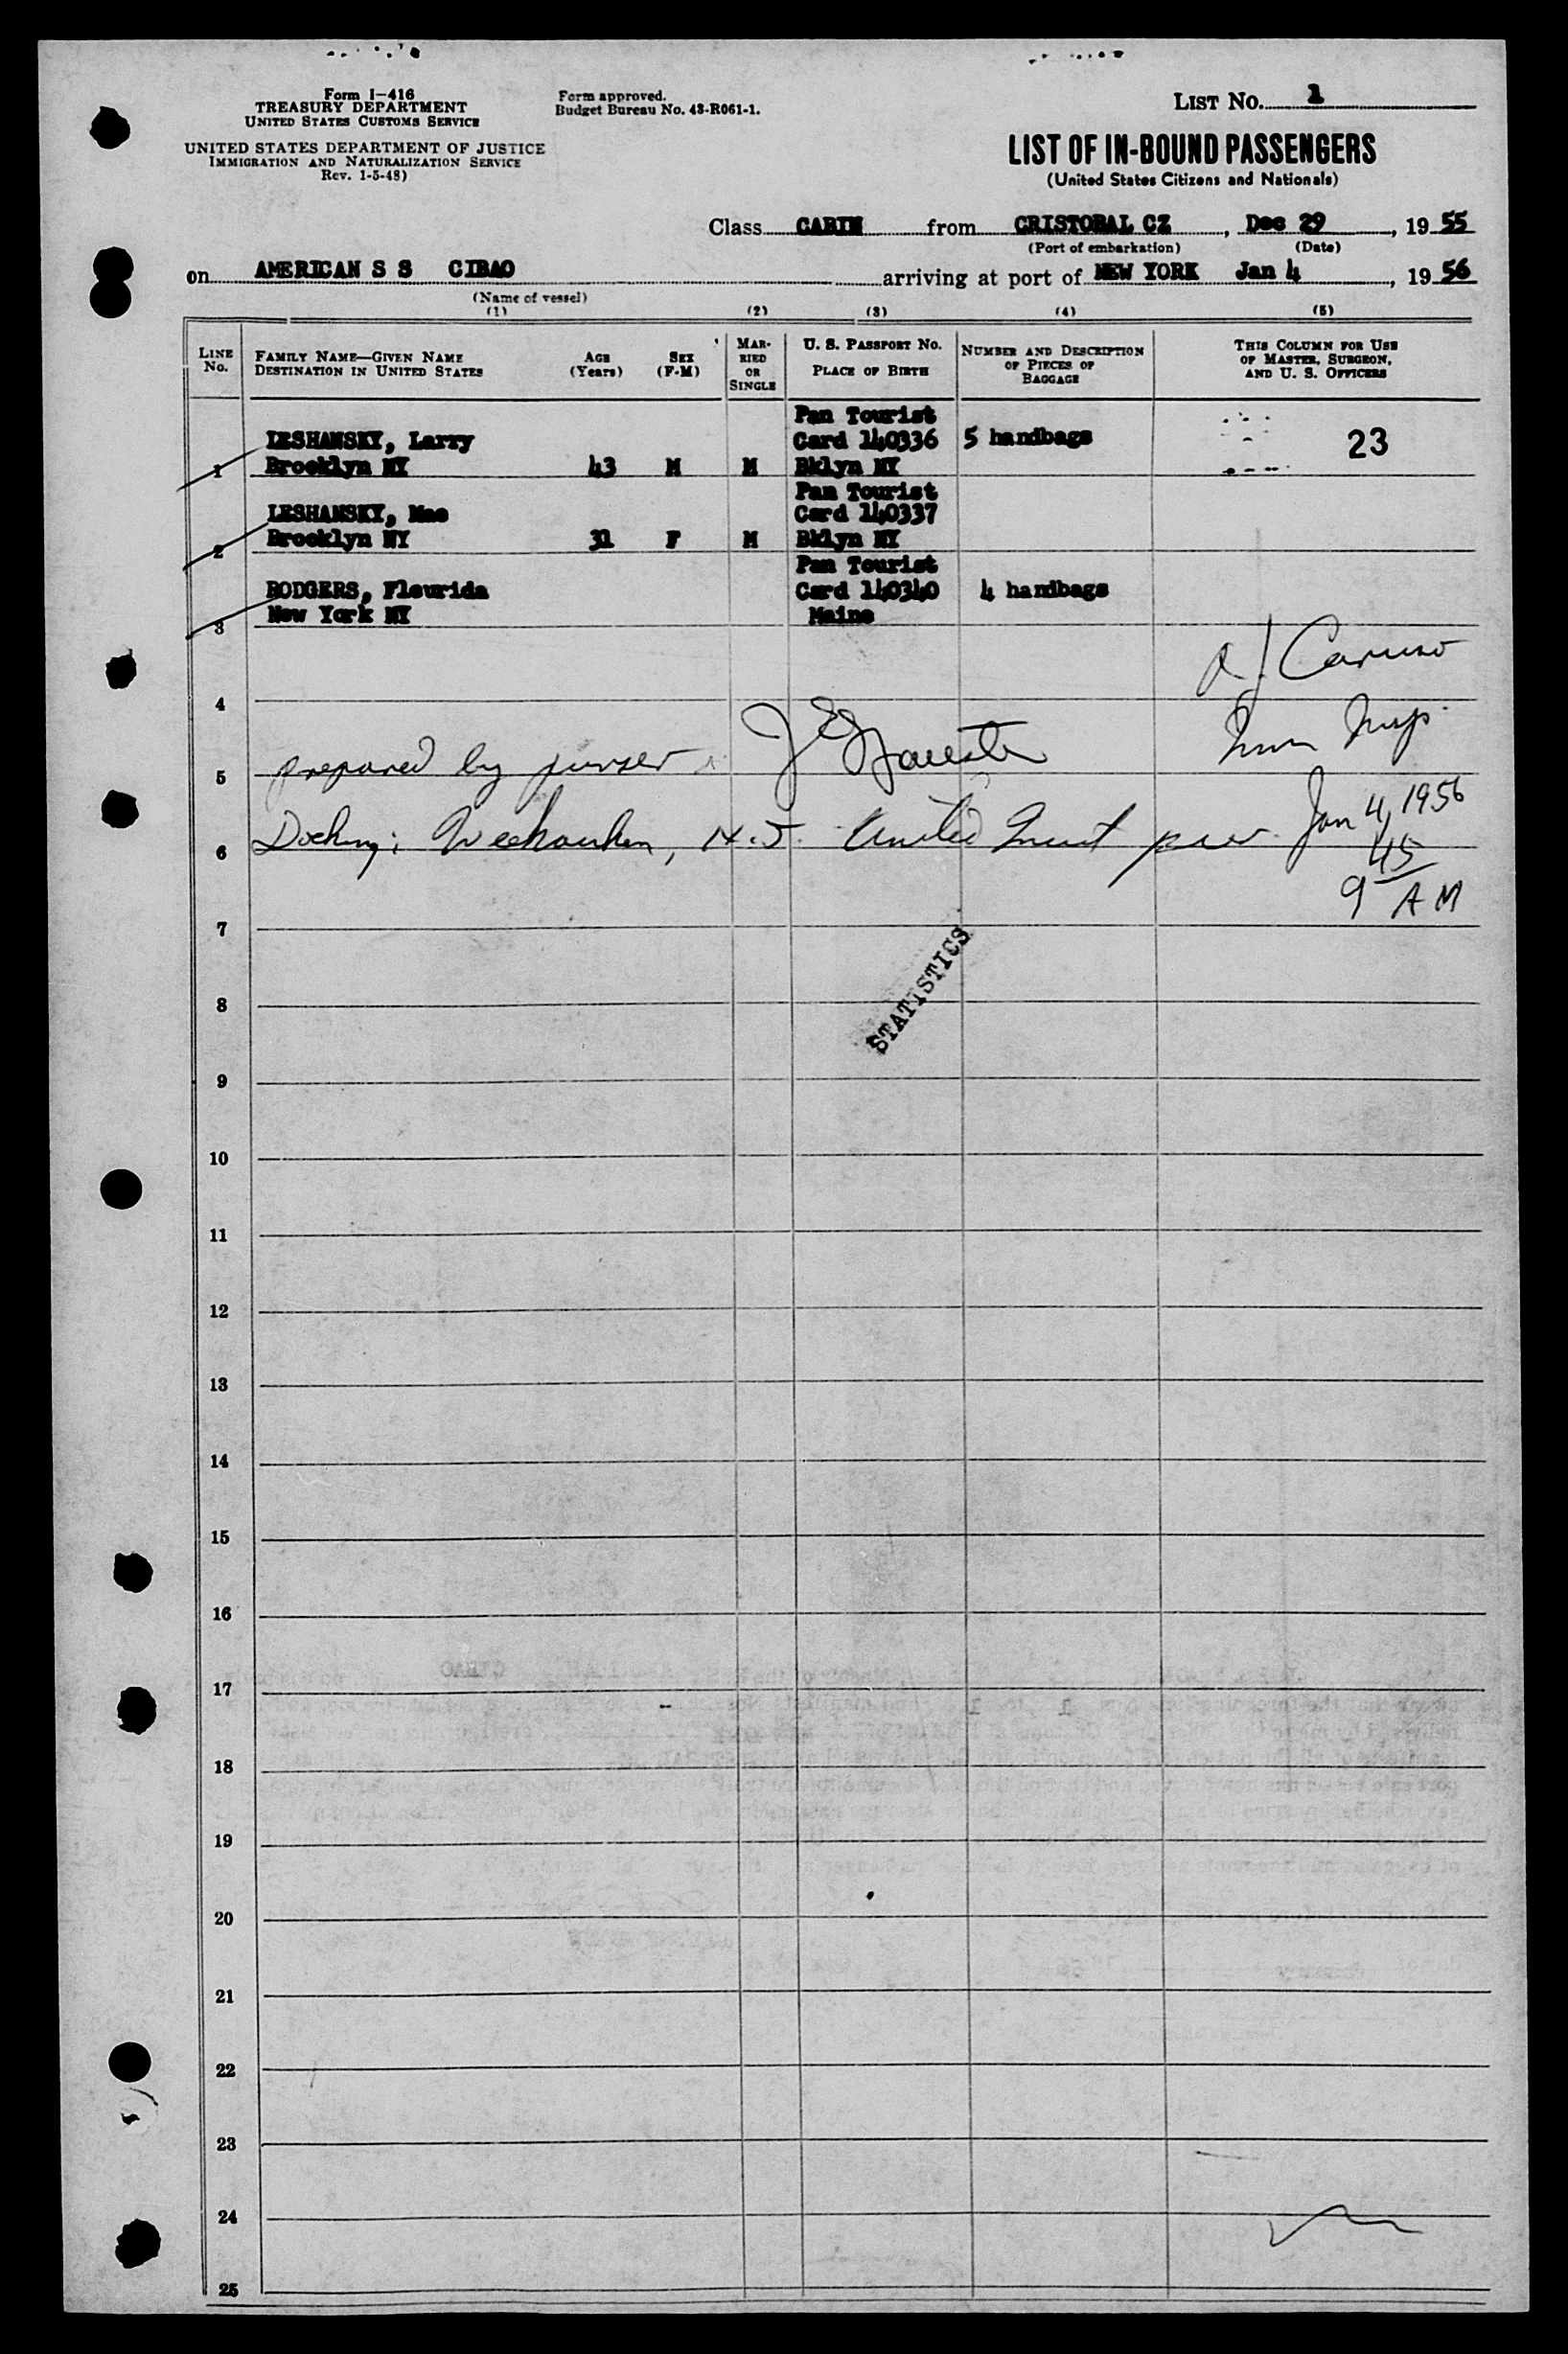 Form I-416
TREASURY DEPARTMENT
UNITED STATES CUSTOMS SERVICE
UNITED STATES DEPARTMENT OF JUSTICE
IMMIGRATION AND NATURALIZATION SERVICE
Rev. 1-5-48)
Form approved.
Budget Bureau No. 43-R061-1.
LIST NO. 1
LIST OF IN-BOUND PASSENGERS
(United States Citizens and Nationals)
Class CABIN from CRISTOBAL CZ, Dec 29, 19 55
(Port of embarkation) (Date)
on AMERICAN S S CIBAO arriving at port of NEW YORK Jan 4, 19 56
(Name of vessel)
(1) (2) (3) (4) (5)
LINE No.
FAMILY NAME—GIVEN NAME
DESTINATION IN UNITED STATES
AGE (Years)
SEX (F-M)
MARRIED OR SINGLE
U. S. PASSPORT NO.
PLACE OF BIRTH
NUMBER AND DESCRIPTION OF PIECES OF BAGGAGE
THIS COLUMN FOR USE OF MASTER, SURGEON, AND U. S. OFFICERS
Pan Tourist
LESHANSKY, Larry Card 140336 5 handbags 23
1 Brooklyn NY 43 M M Bklyn NY
Pan Tourist
LESHANSKY, Mae Card 140337
2 Brooklyn NY 31 F M Bklyn NY
Pan Tourist
RODGERS, Fleurida Card 140340 4 handbags
3 New York NY Maine
Caruso
4
Imm Insp.
5 prepared by purser
Jan 4, 1956
6 Docking: Weehawken, N.J. United Fruit pier
9 45 AM
7
STATISTICS
8
9
10
11
12
13
14
15
16
17
18
19
20
21
22
23
24
25